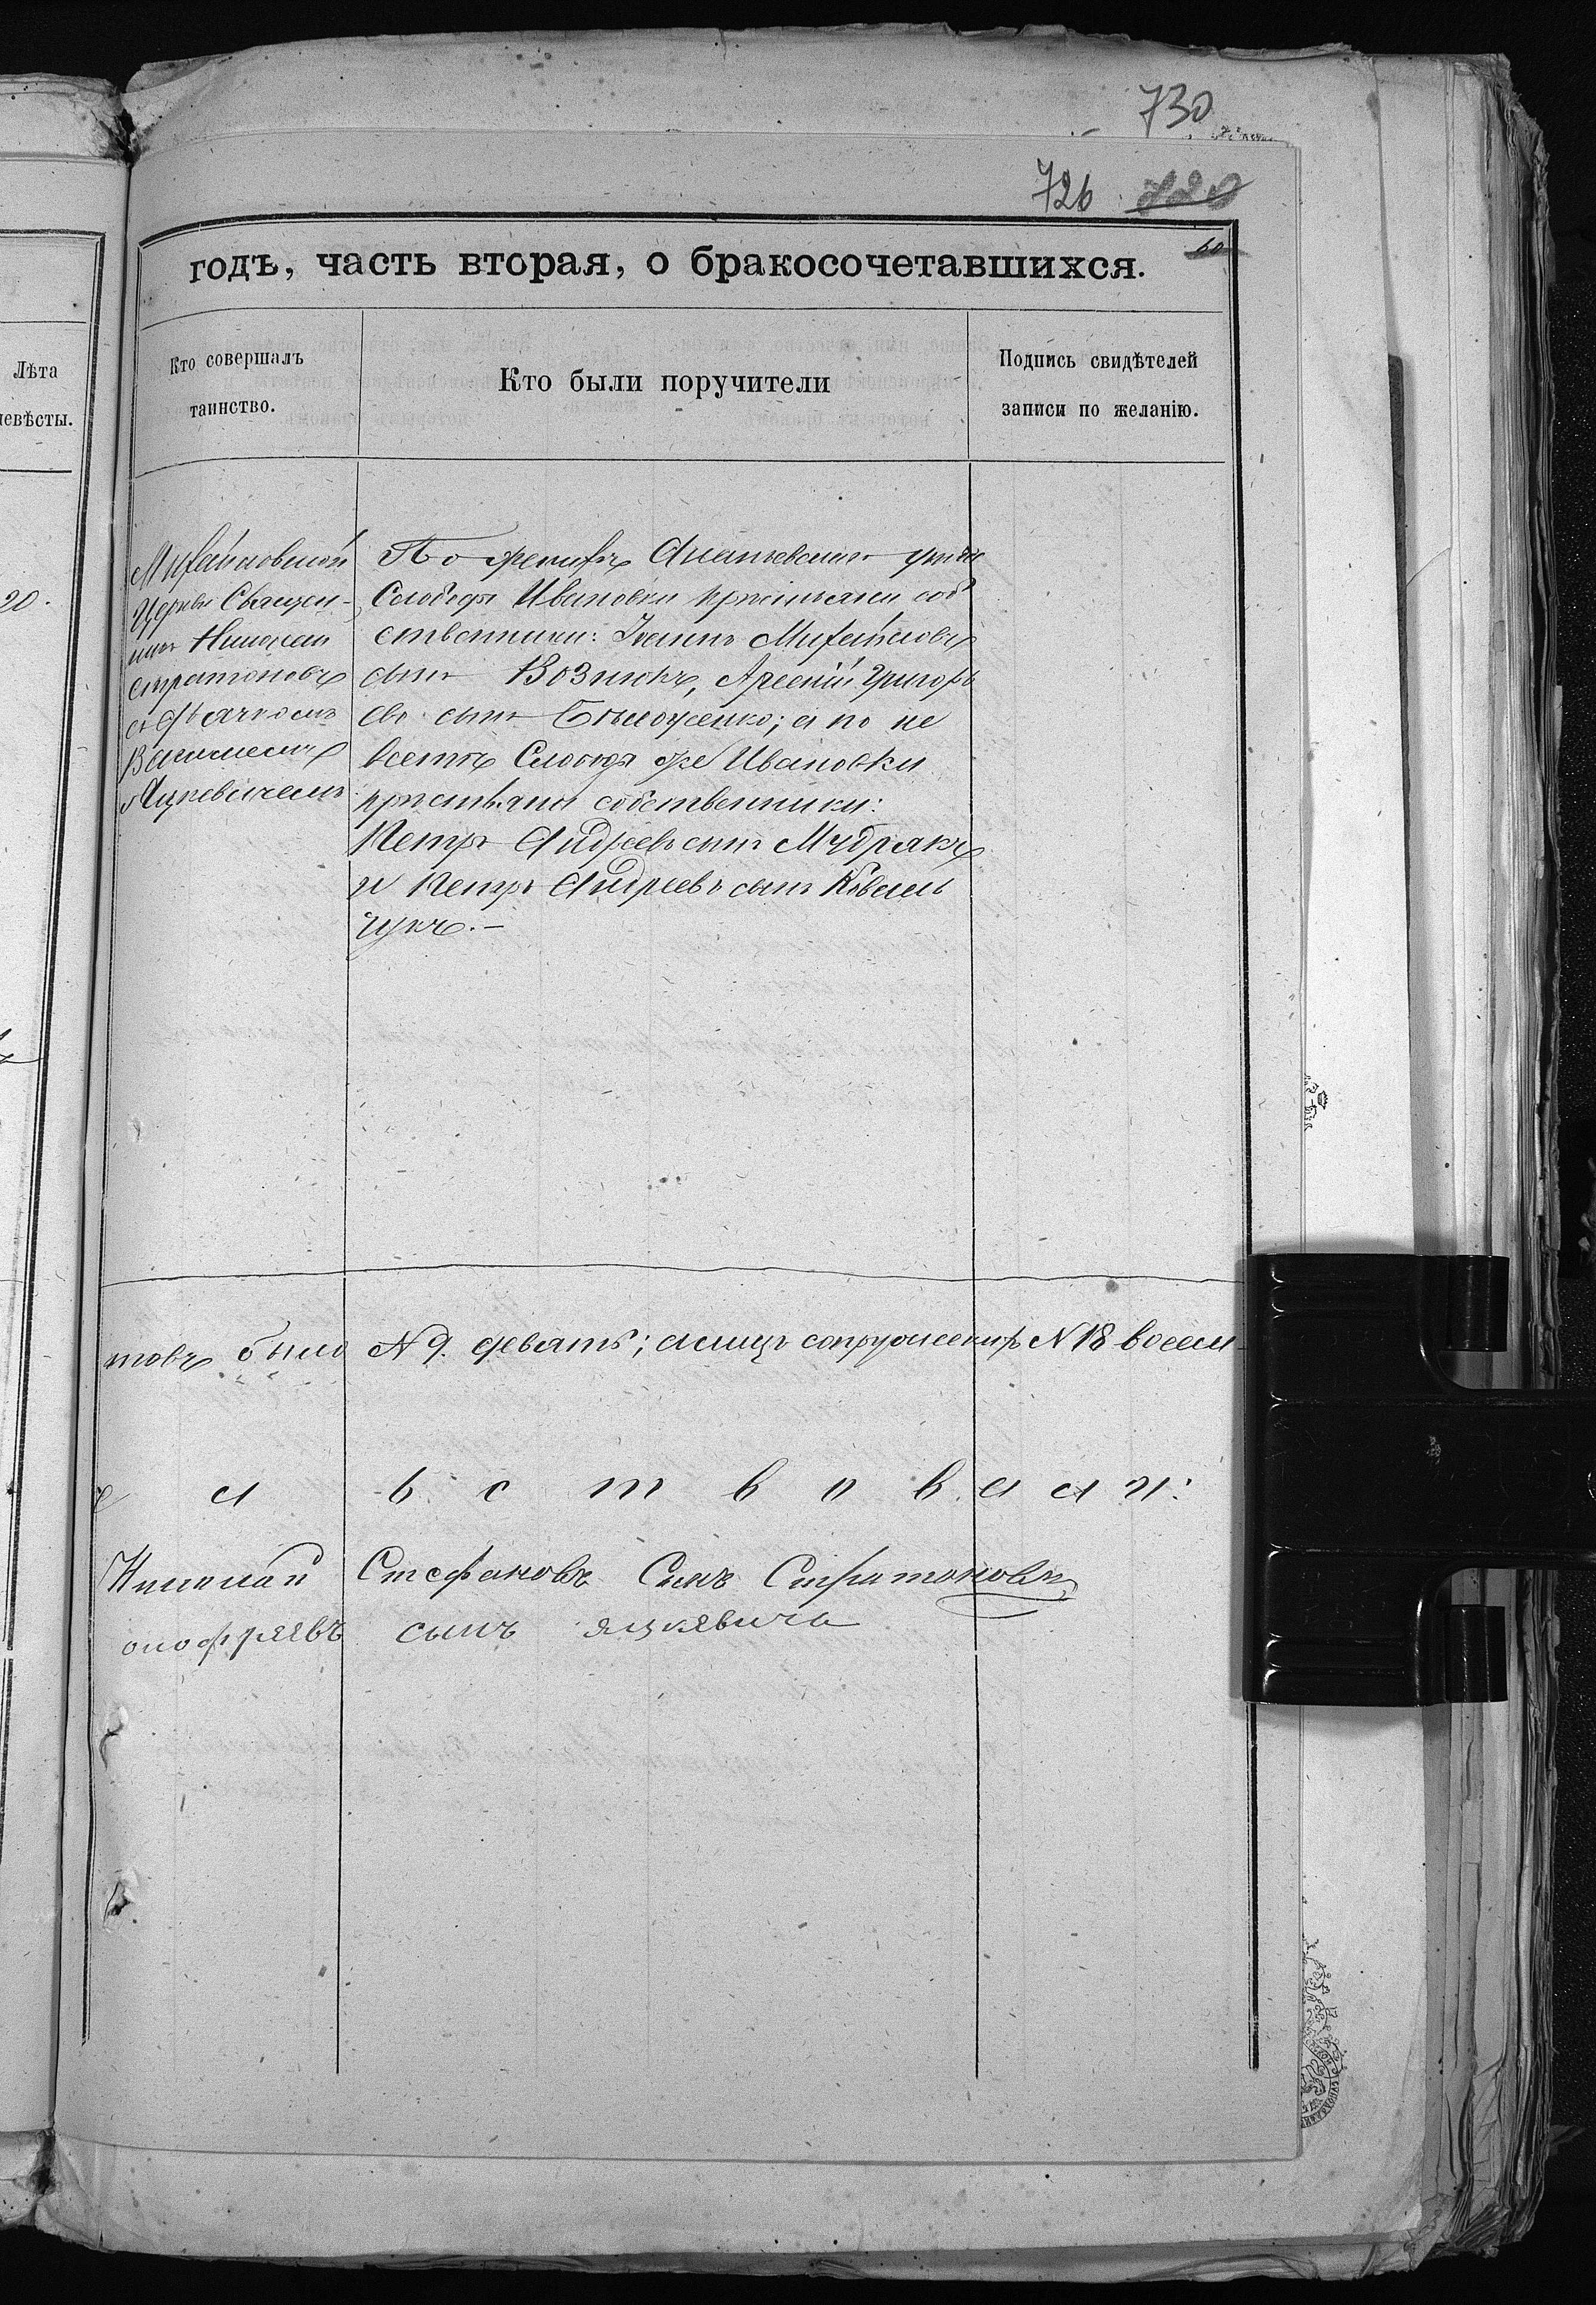 730
726 720
60
годъ, часть вторая, о бракосочетавшихся.
Лѣта
невѣсты.
Кто совершалъ
таинство.
Кто были поручители
Подпись свидѣтелей
записи по желанію.
20.
Михайловской
Церкви Священ-
никъ Николай
Стратоновъ
съ дьячкомъ
Василіемъ
Яцкевичемъ
По женихѣ Ананьевскаго уѣзда
Слободы Ивановки крестьяни соб
ственники: Іоаннъ Михайловъ
сынъ Вознюкъ, Арсеній Григорь
евъ сынъ Биложенко; а по не
вестѣ Слободы же Ивановки
крестьяни собственники:
Петръ Андреевъ сынъ Мудракъ
и Петръ Андреевъ сынъ Коваль
чукъ.-
товъ было N 9. девять; а лицъ сопряженныхъ N 18 восем-
ѣ л ь с т в о в а л и:
Николай Стефановъ Сынъ Стратоновъ
онофрѣевъ сынъ яцкевичъ